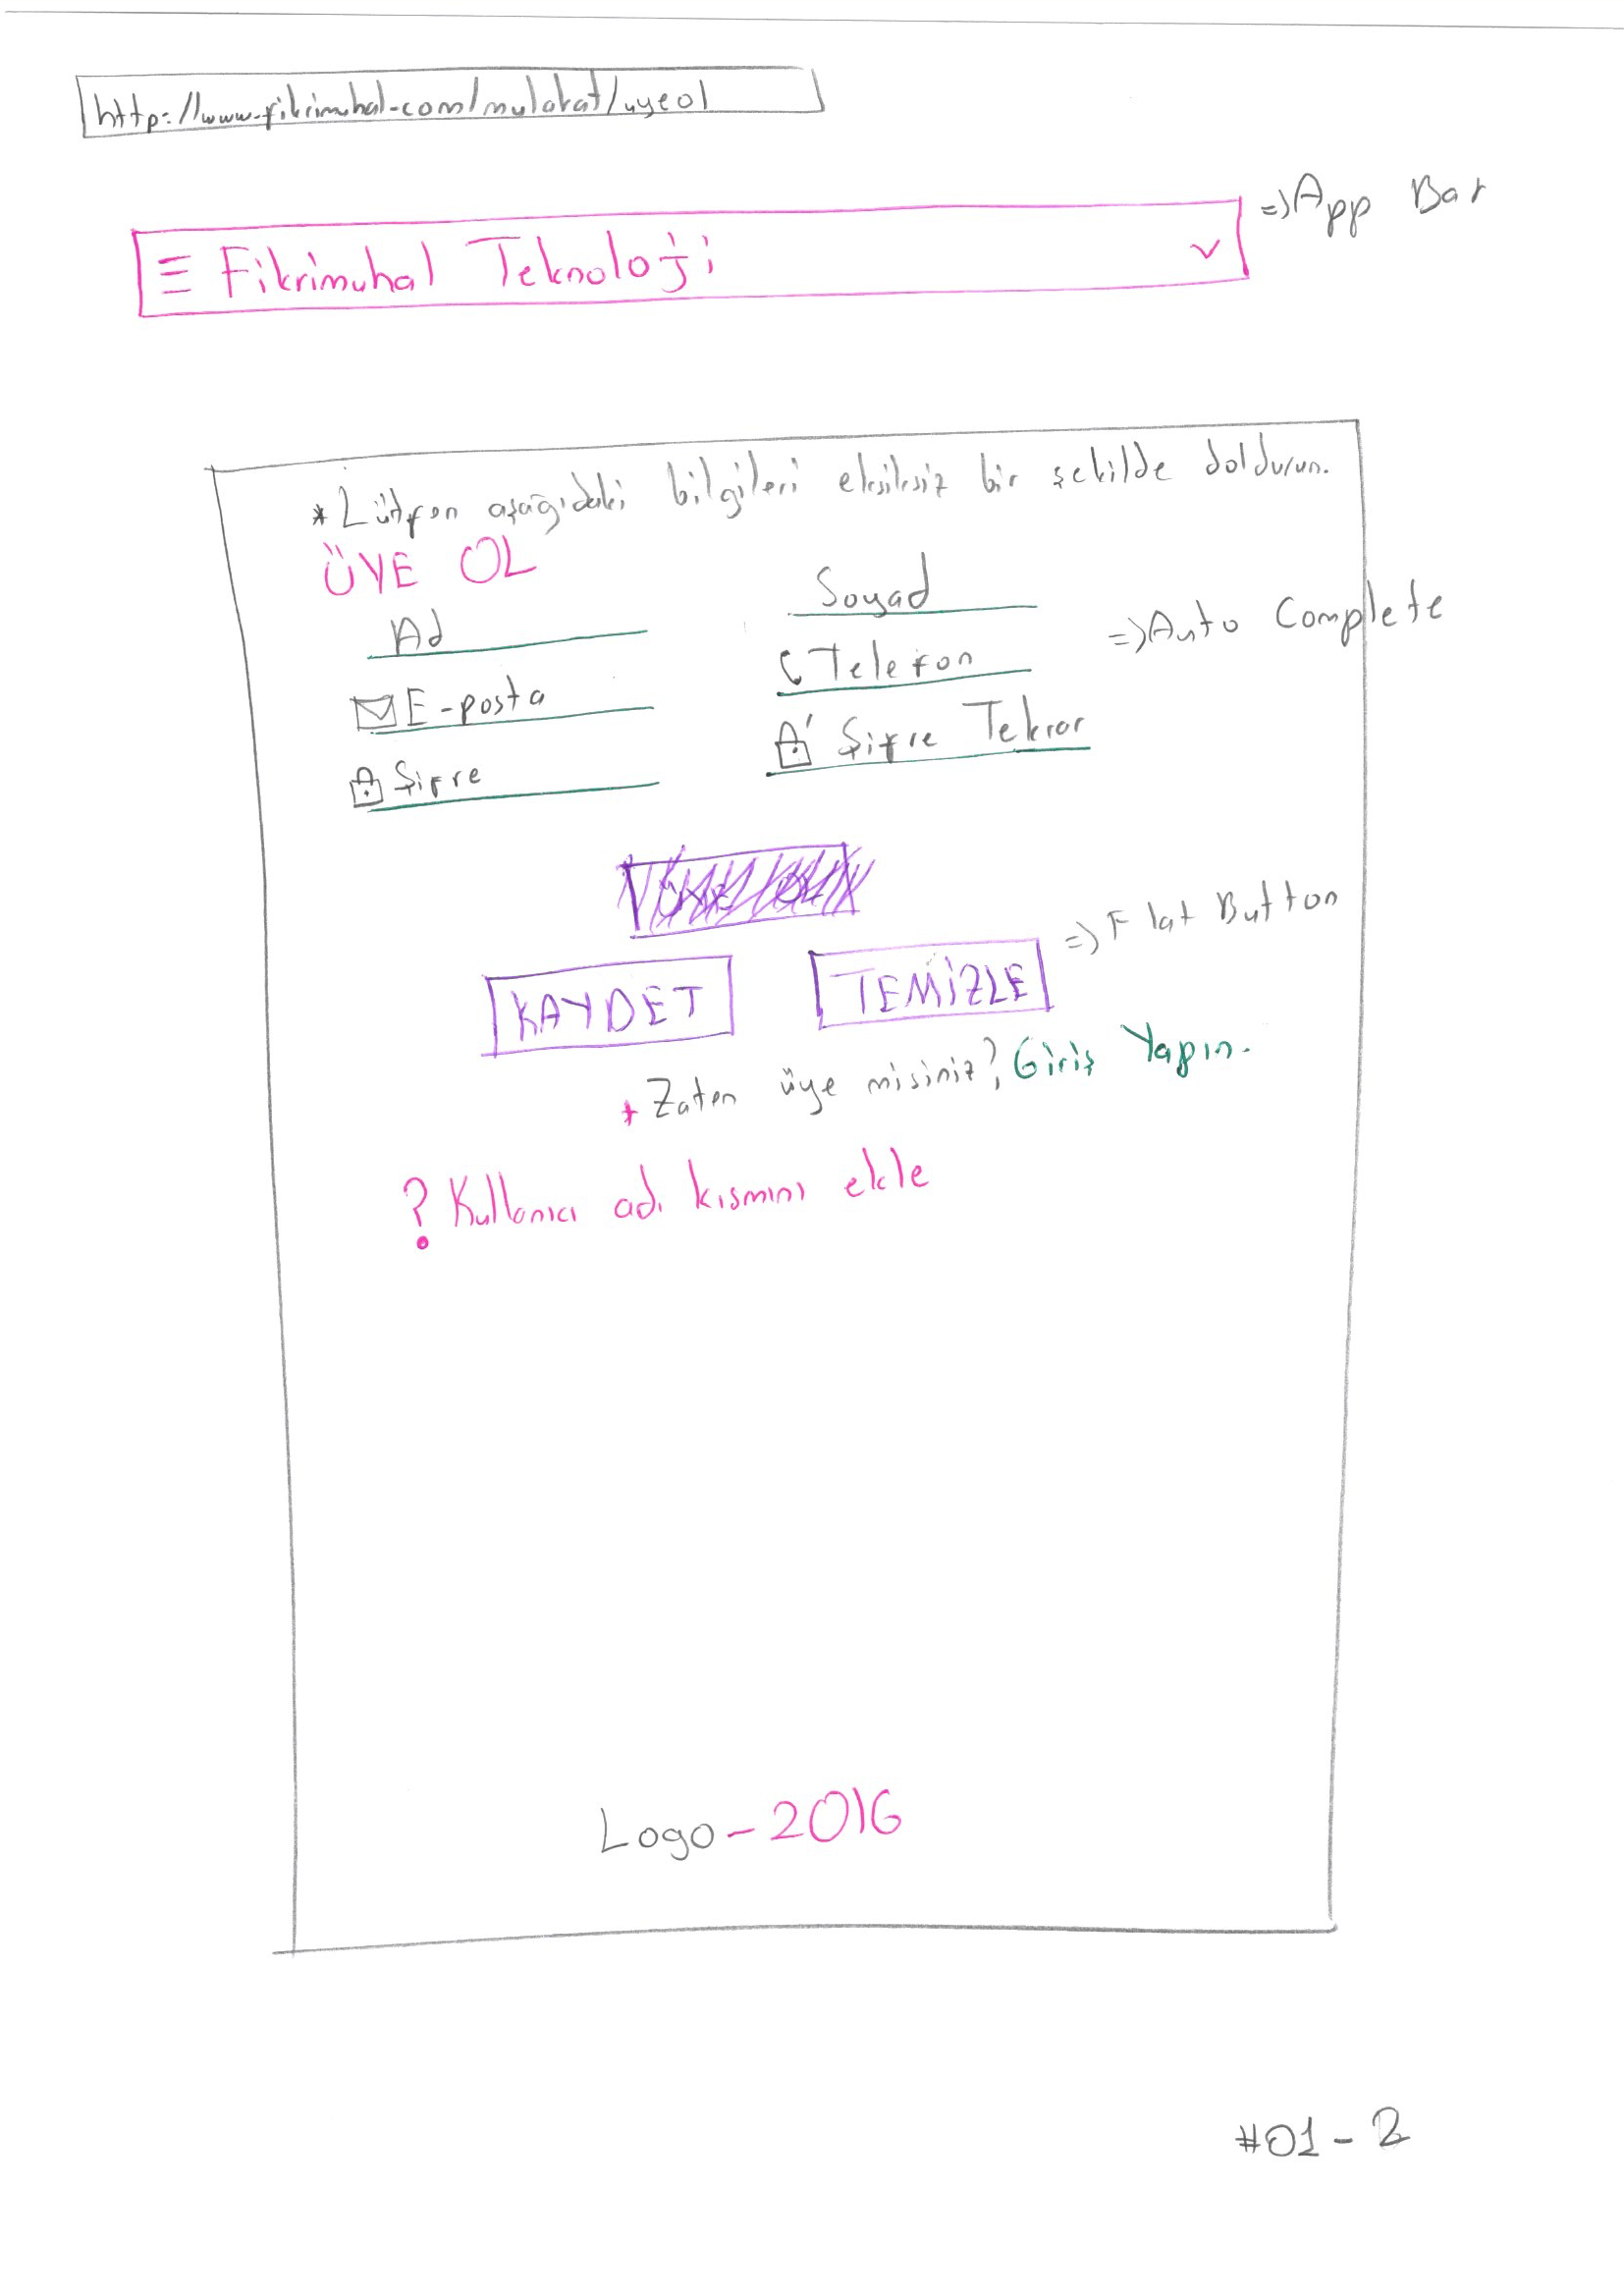 http://www.fikrimuhal.com/mulakat/uyeol
Fikrimuhal Teknoloji
=> App Bar
* Lütfen aşağıdaki bilgileri eksiksiz bir şekilde doldurun.
ÜYE OL
Ad Soyad
=> Auto Complete
E-posta Telefon
Şifre Şifre Tekrar
KAYDET TEMİZLE => Flat Button
* Zaten üye misiniz? Giriş Yapın.
? Kullanıcı adı kısmını ekle
Logo - 2016
#01 - 2